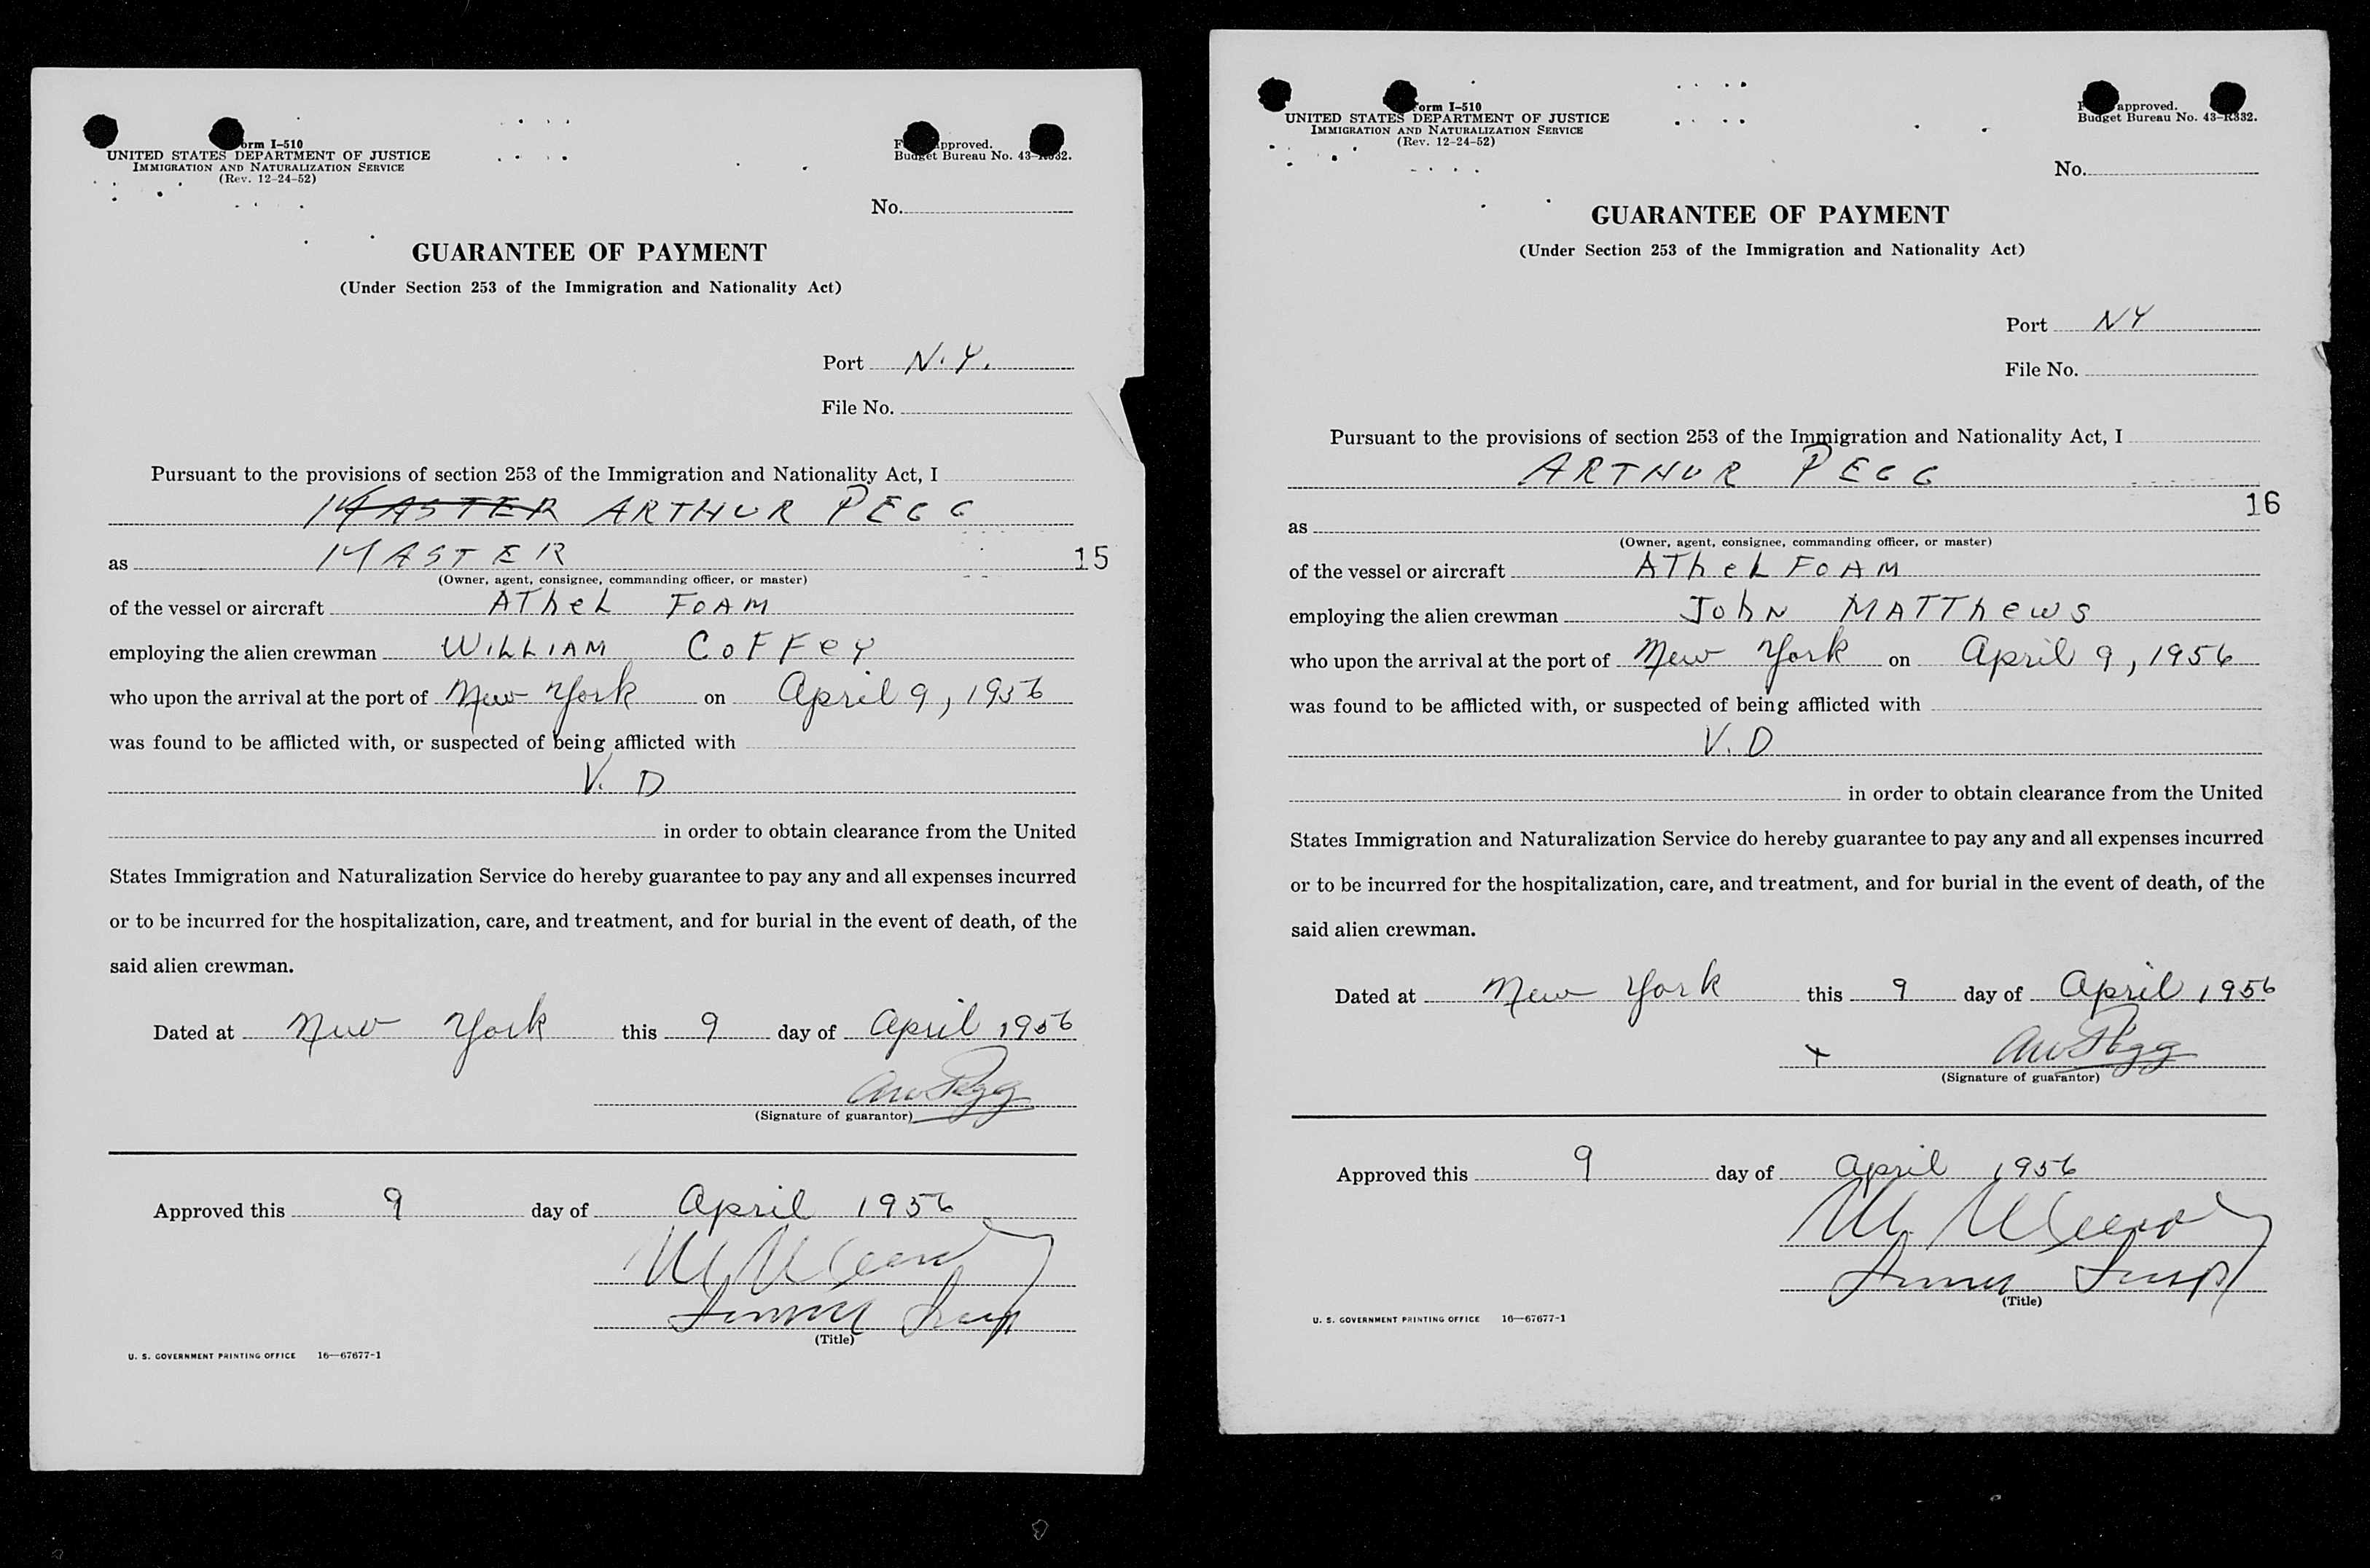 Form I-510
UNITED STATES DEPARTMENT OF JUSTICE
IMMIGRATION AND NATURALIZATION SERVICE
(Rev. 12-24-52)
approved.
Budget Bureau No. 43-R332.
No.
GUARANTEE OF PAYMENT
(Under Section 253 of the Immigration and Nationality Act)
Port N.Y.
File No.
Pursuant to the provisions of section 253 of the Immigration and Nationality Act, I
MASTER ARTHUR PEGG
as MASTER 15
(Owner, agent, consignee, commanding officer, or master)
of the vessel or aircraft AThеL FOAM
employing the alien crewman WILLIAM COFFeY
who upon the arrival at the port of New York on April 9, 1956
was found to be afflicted with, or suspected of being afflicted with
V. D
in order to obtain clearance from the United
States Immigration and Naturalization Service do hereby guarantee to pay any and all expenses incurred
or to be incurred for the hospitalization, care, and treatment, and for burial in the event of death, of the
said alien crewman.
Dated at New York this 9 day of April 1956
AW Pegg
(Signature of guarantor)
Approved this 9 day of April 1956
(Title)
U. S. GOVERNMENT PRINTING OFFICE 16—67677-1
Form I-510
UNITED STATES DEPARTMENT OF JUSTICE
IMMIGRATION AND NATURALIZATION SERVICE
(Rev. 12-24-52)
approved.
Budget Bureau No. 43-R332.
No.
GUARANTEE OF PAYMENT
(Under Section 253 of the Immigration and Nationality Act)
Port NY
File No.
Pursuant to the provisions of section 253 of the Immigration and Nationality Act, I
ARTHUR PEGG
16
as
(Owner, agent, consignee, commanding officer, or master)
of the vessel or aircraft ATheL FOAM
employing the alien crewman JohN MATThewS
who upon the arrival at the port of New York on April 9, 1956
was found to be afflicted with, or suspected of being afflicted with
V. D
in order to obtain clearance from the United
States Immigration and Naturalization Service do hereby guarantee to pay any and all expenses incurred
or to be incurred for the hospitalization, care, and treatment, and for burial in the event of death, of the
said alien crewman.
Dated at New York this 9 day of April 1956
x AW Pegg
(Signature of guarantor)
Approved this 9 day of April 1956
(Title)
U. S. GOVERNMENT PRINTING OFFICE 16—67677-1